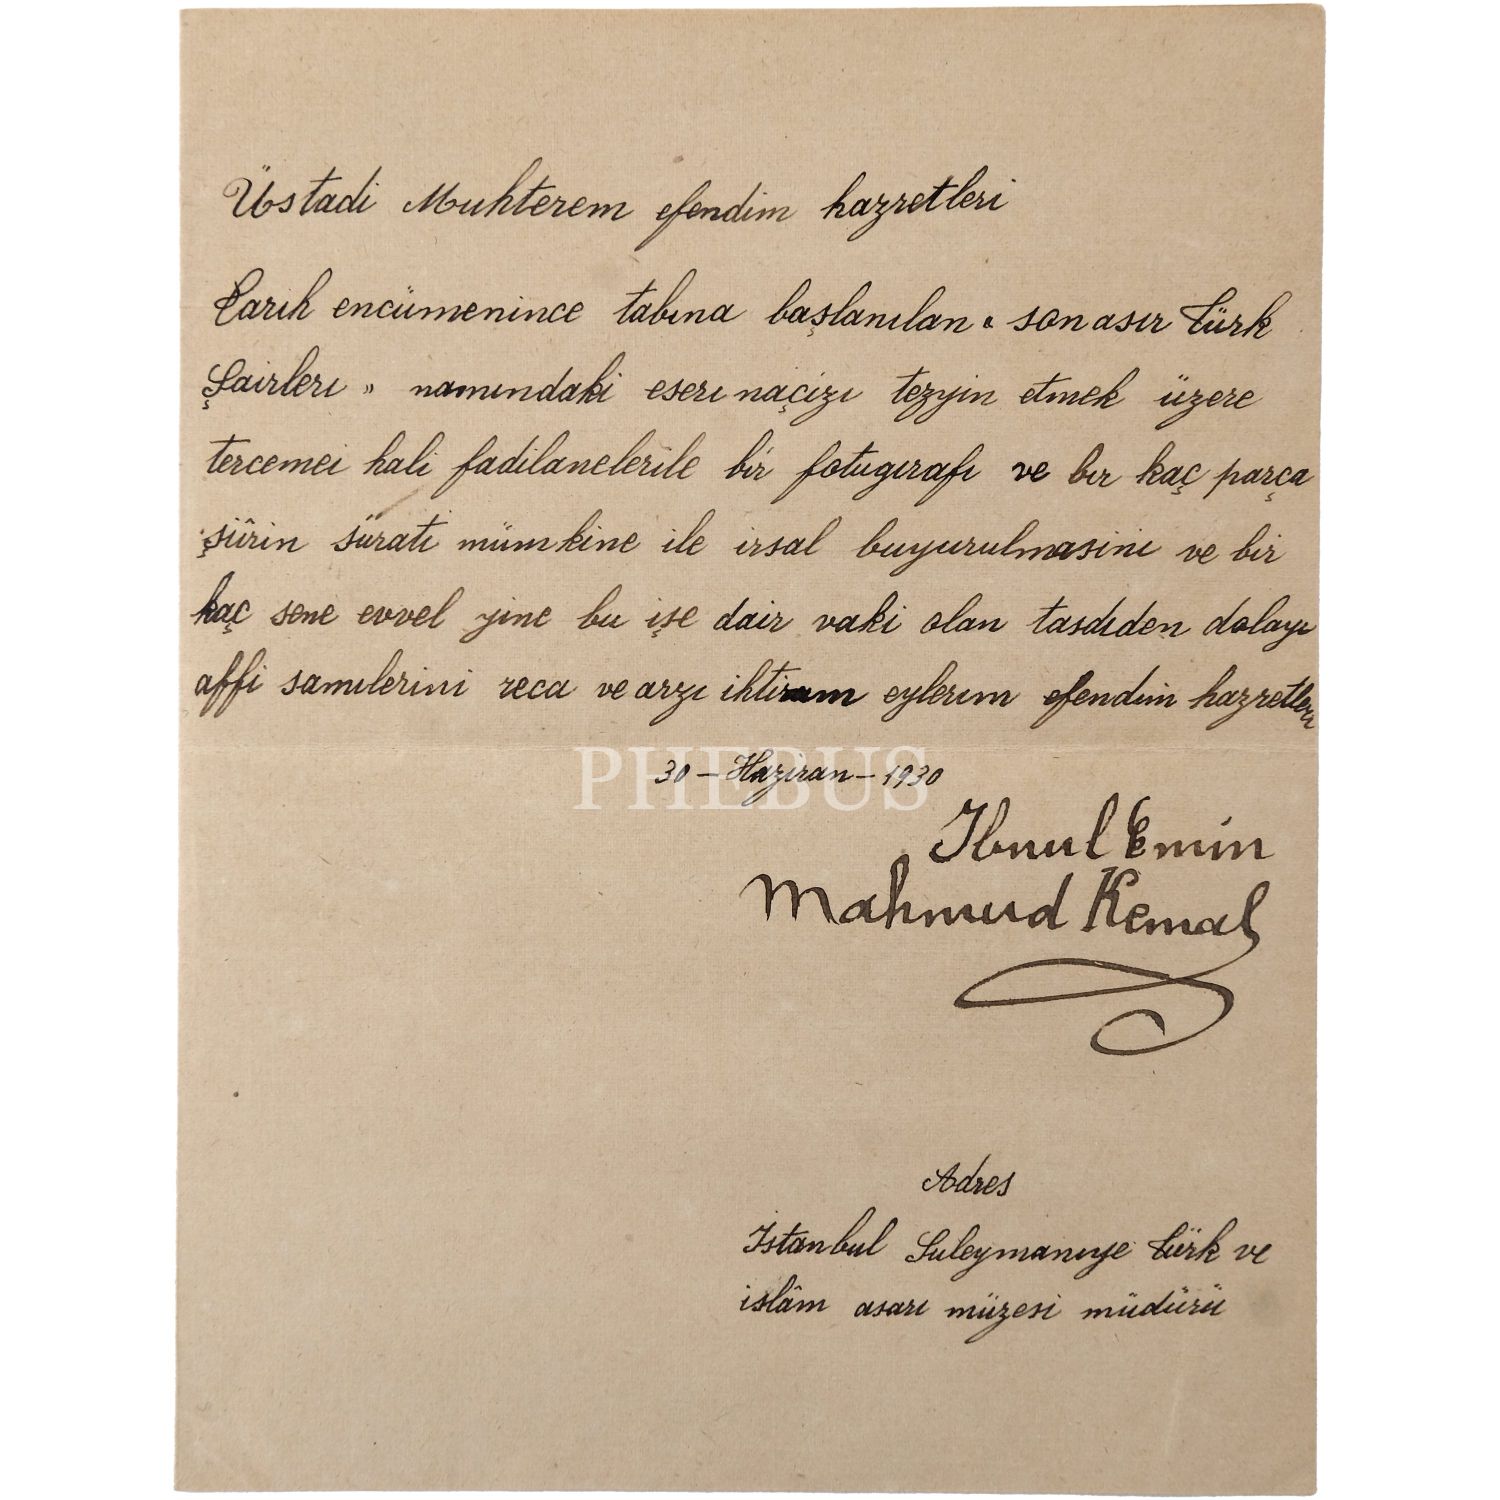 Üstadi Muhterem efendim hazretleri
Tarih encümenince tabına başlanılan « son asır Türk
Şairleri » namındaki eseri naçizi tezyin etmek üzere
tercemei hali fadilanelerile bir fotugırafı ve bir kaç parça
şiîrin sürati mümkine ile irsal buyurulmasini ve bir
kaç sene evvel yine bu işe dair vaki olan tasdiden dolayı
affi samilerini reca ve arzı ihtiram eylerim efendim hazretleri
30 - Haziran - 1930
PHEBUS
Ibnul Emin
Mahmud Kemal
Adres
İstanbul Suleymaniye Türk ve
islâm asarı müzesi müdürü